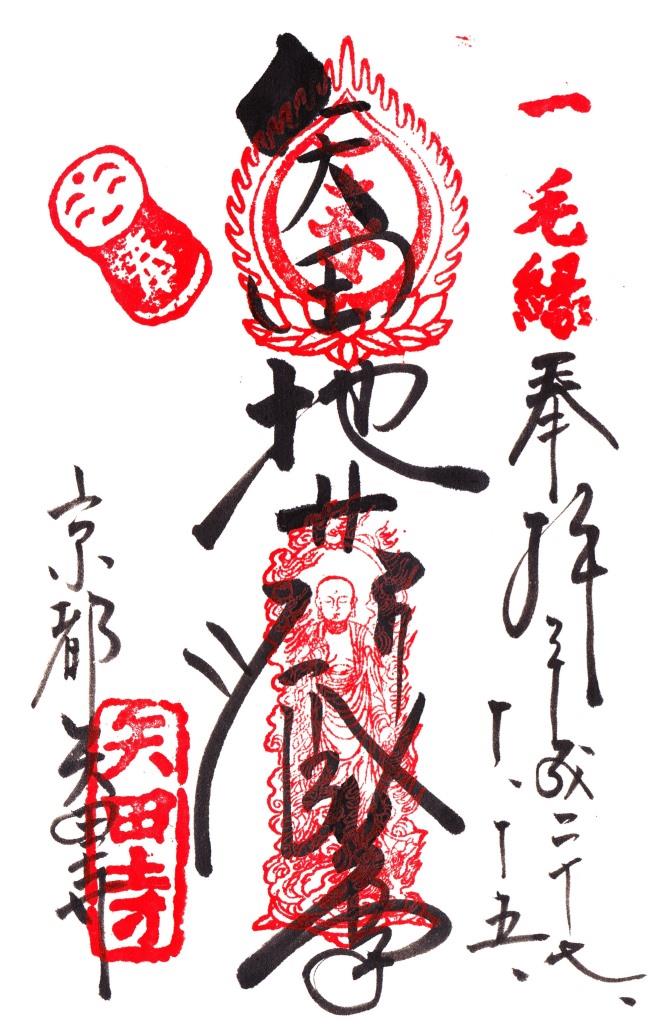 一毛縁
奉拝
平成二十七、
十、十五、
矢田
地蔵尊
京都
矢田寺
矢田寺